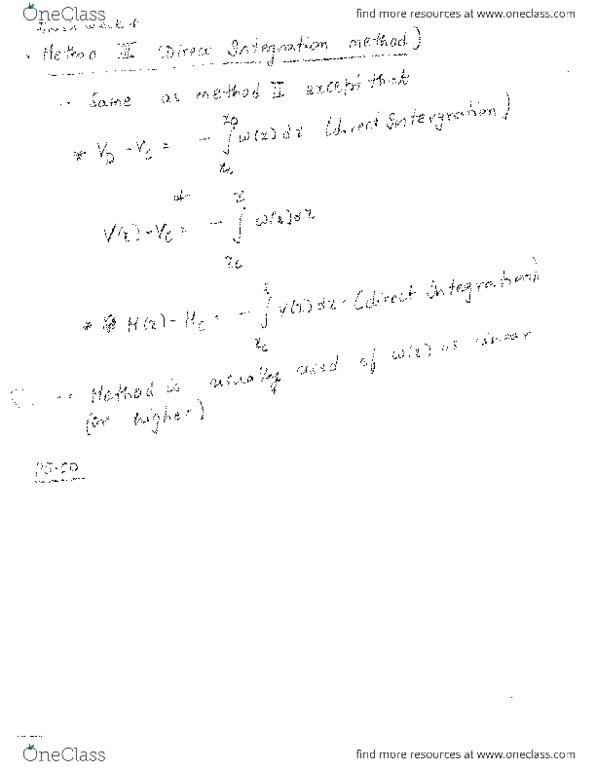 OneClass find more resources at www.oneclass.com
· Method III (Direct Integration method)
·· Same as method II except that
* V_D - V_C = - ∫_{x_C}^{x_D} w(x) dx (direct Intergration)
V(x) - V_C = - ∫_{x_C}^{x} w(x) dx
* M(x) - M_C = - ∫_{x_C} V(x) dx - (direct Integration)
·· Method is usually used of w(x) is linear
(or higher)
OneClass find more resources at www.oneclass.com